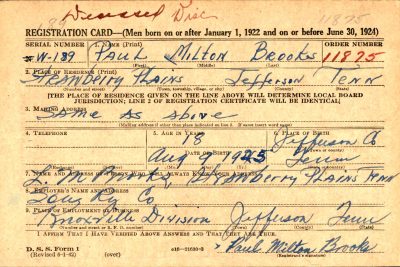 Deceased Disc
11825
REGISTRATION CARD—(Men born on or after January 1, 1922 and on or before June 30, 1924)
SERIAL NUMBER 1. NAME (Print) ORDER NUMBER
W-189 PAUL Milton Brooks 11825
(First) (Middle) (Last)
2. PLACE OF RESIDENCE (Print)
STRAWBERRY PLAINS Jefferson Tenn
(Town, township, village, or city) (County) (State)
[THE PLACE OF RESIDENCE GIVEN ON THE LINE ABOVE WILL DETERMINE LOCAL BOARD
JURISDICTION; LINE 2 OF REGISTRATION CERTIFICATE WILL BE IDENTICAL]
3. MAILING ADDRESS
Same As Above
[Mailing address if other than place indicated on line 2. If same insert word same]
4. TELEPHONE 5. AGE IN YEARS 6. PLACE OF BIRTH
18 Jefferson Co
DATE OF BIRTH
Aug 9 1925 Tenn
Brooks, Strawberry Plains Tenn
8. EMPLOYER'S NAME AND ADDRESS
Sou Ry Co
9. PLACE OF EMPLOYMENT OR BUSINESS
Knoxville Division Jefferson Tenn
I AFFIRM THAT I HAVE VERIFIED ABOVE ANSWERS AND THAT THEY ARE TRUE.
D. S. S. Form 1
(Revised 6-1-42) (over) Paul Milton Brooks